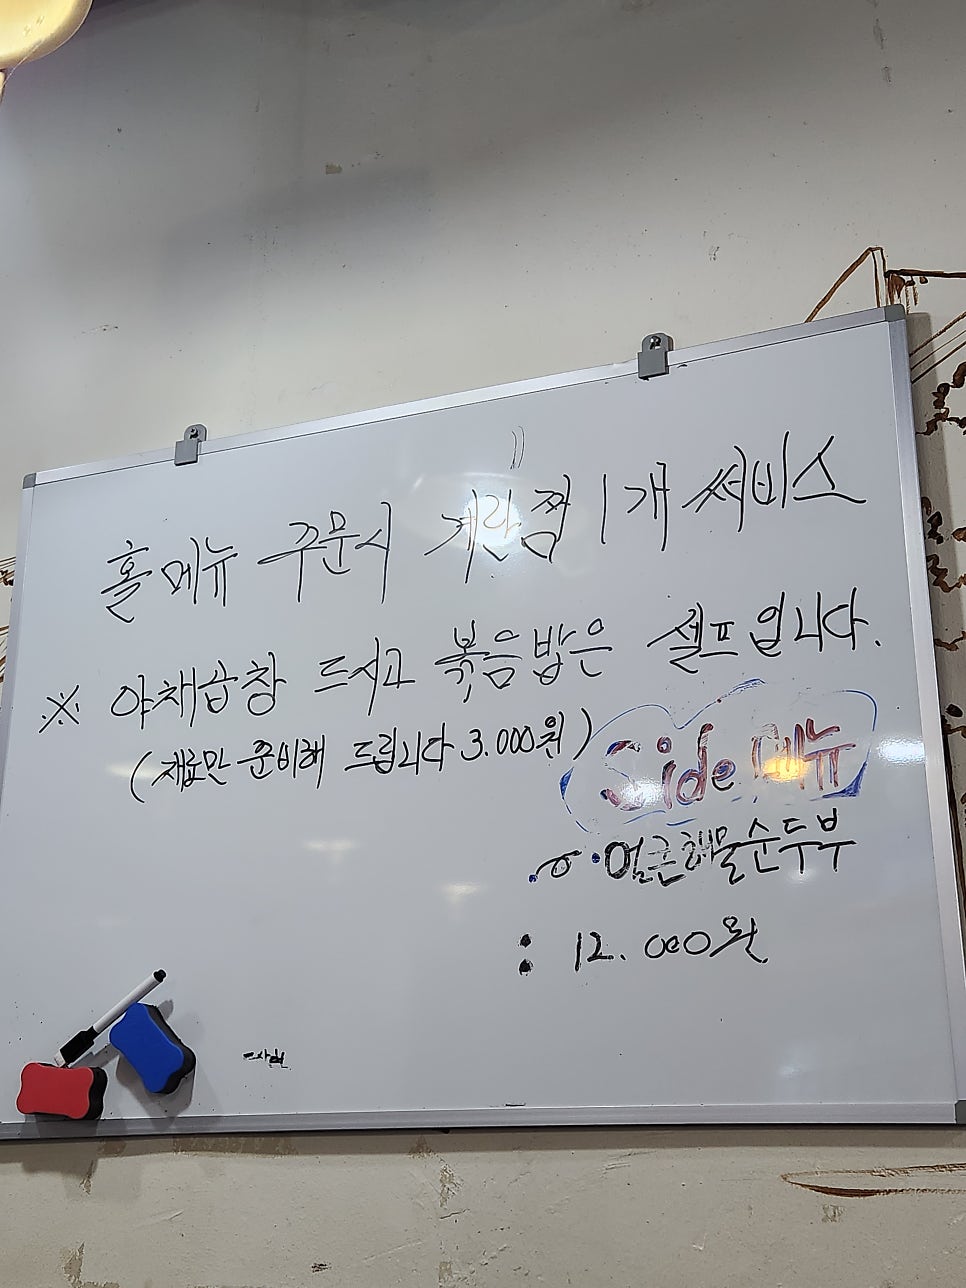 홀메뉴 주문시 계란찜 1개 써비스
※ 야채곱창 드시고 볶음밥은 셀프입니다.
(재료만 준비해 드립니다 3.000원)
Side 메뉴
얼큰해물순두부
: 12.000원